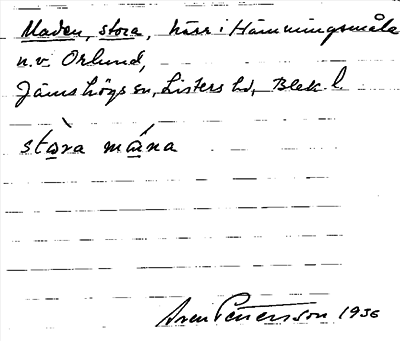 Maden, stora, kärr i Hämmingsmåla
n.v. Orlund,
Jämshögs sn, Listers hd, Blek. l.
stòra mána
Sven Petersson 1936